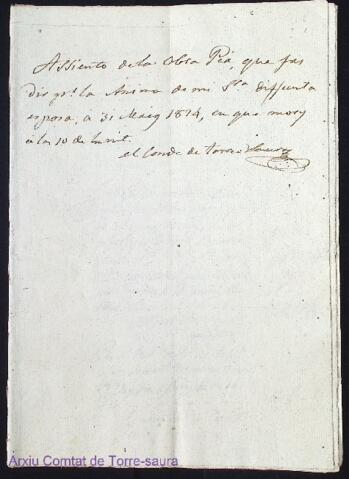 Assiento de la Obra Pia que fas
dir pr. la Anima de mi Sra. diffunta
esposa, a 31 Maig 1814, en que morý
a las 10 de la nit.
el Conde de Torre Saura
Arxiu Comtat de Torre-saura